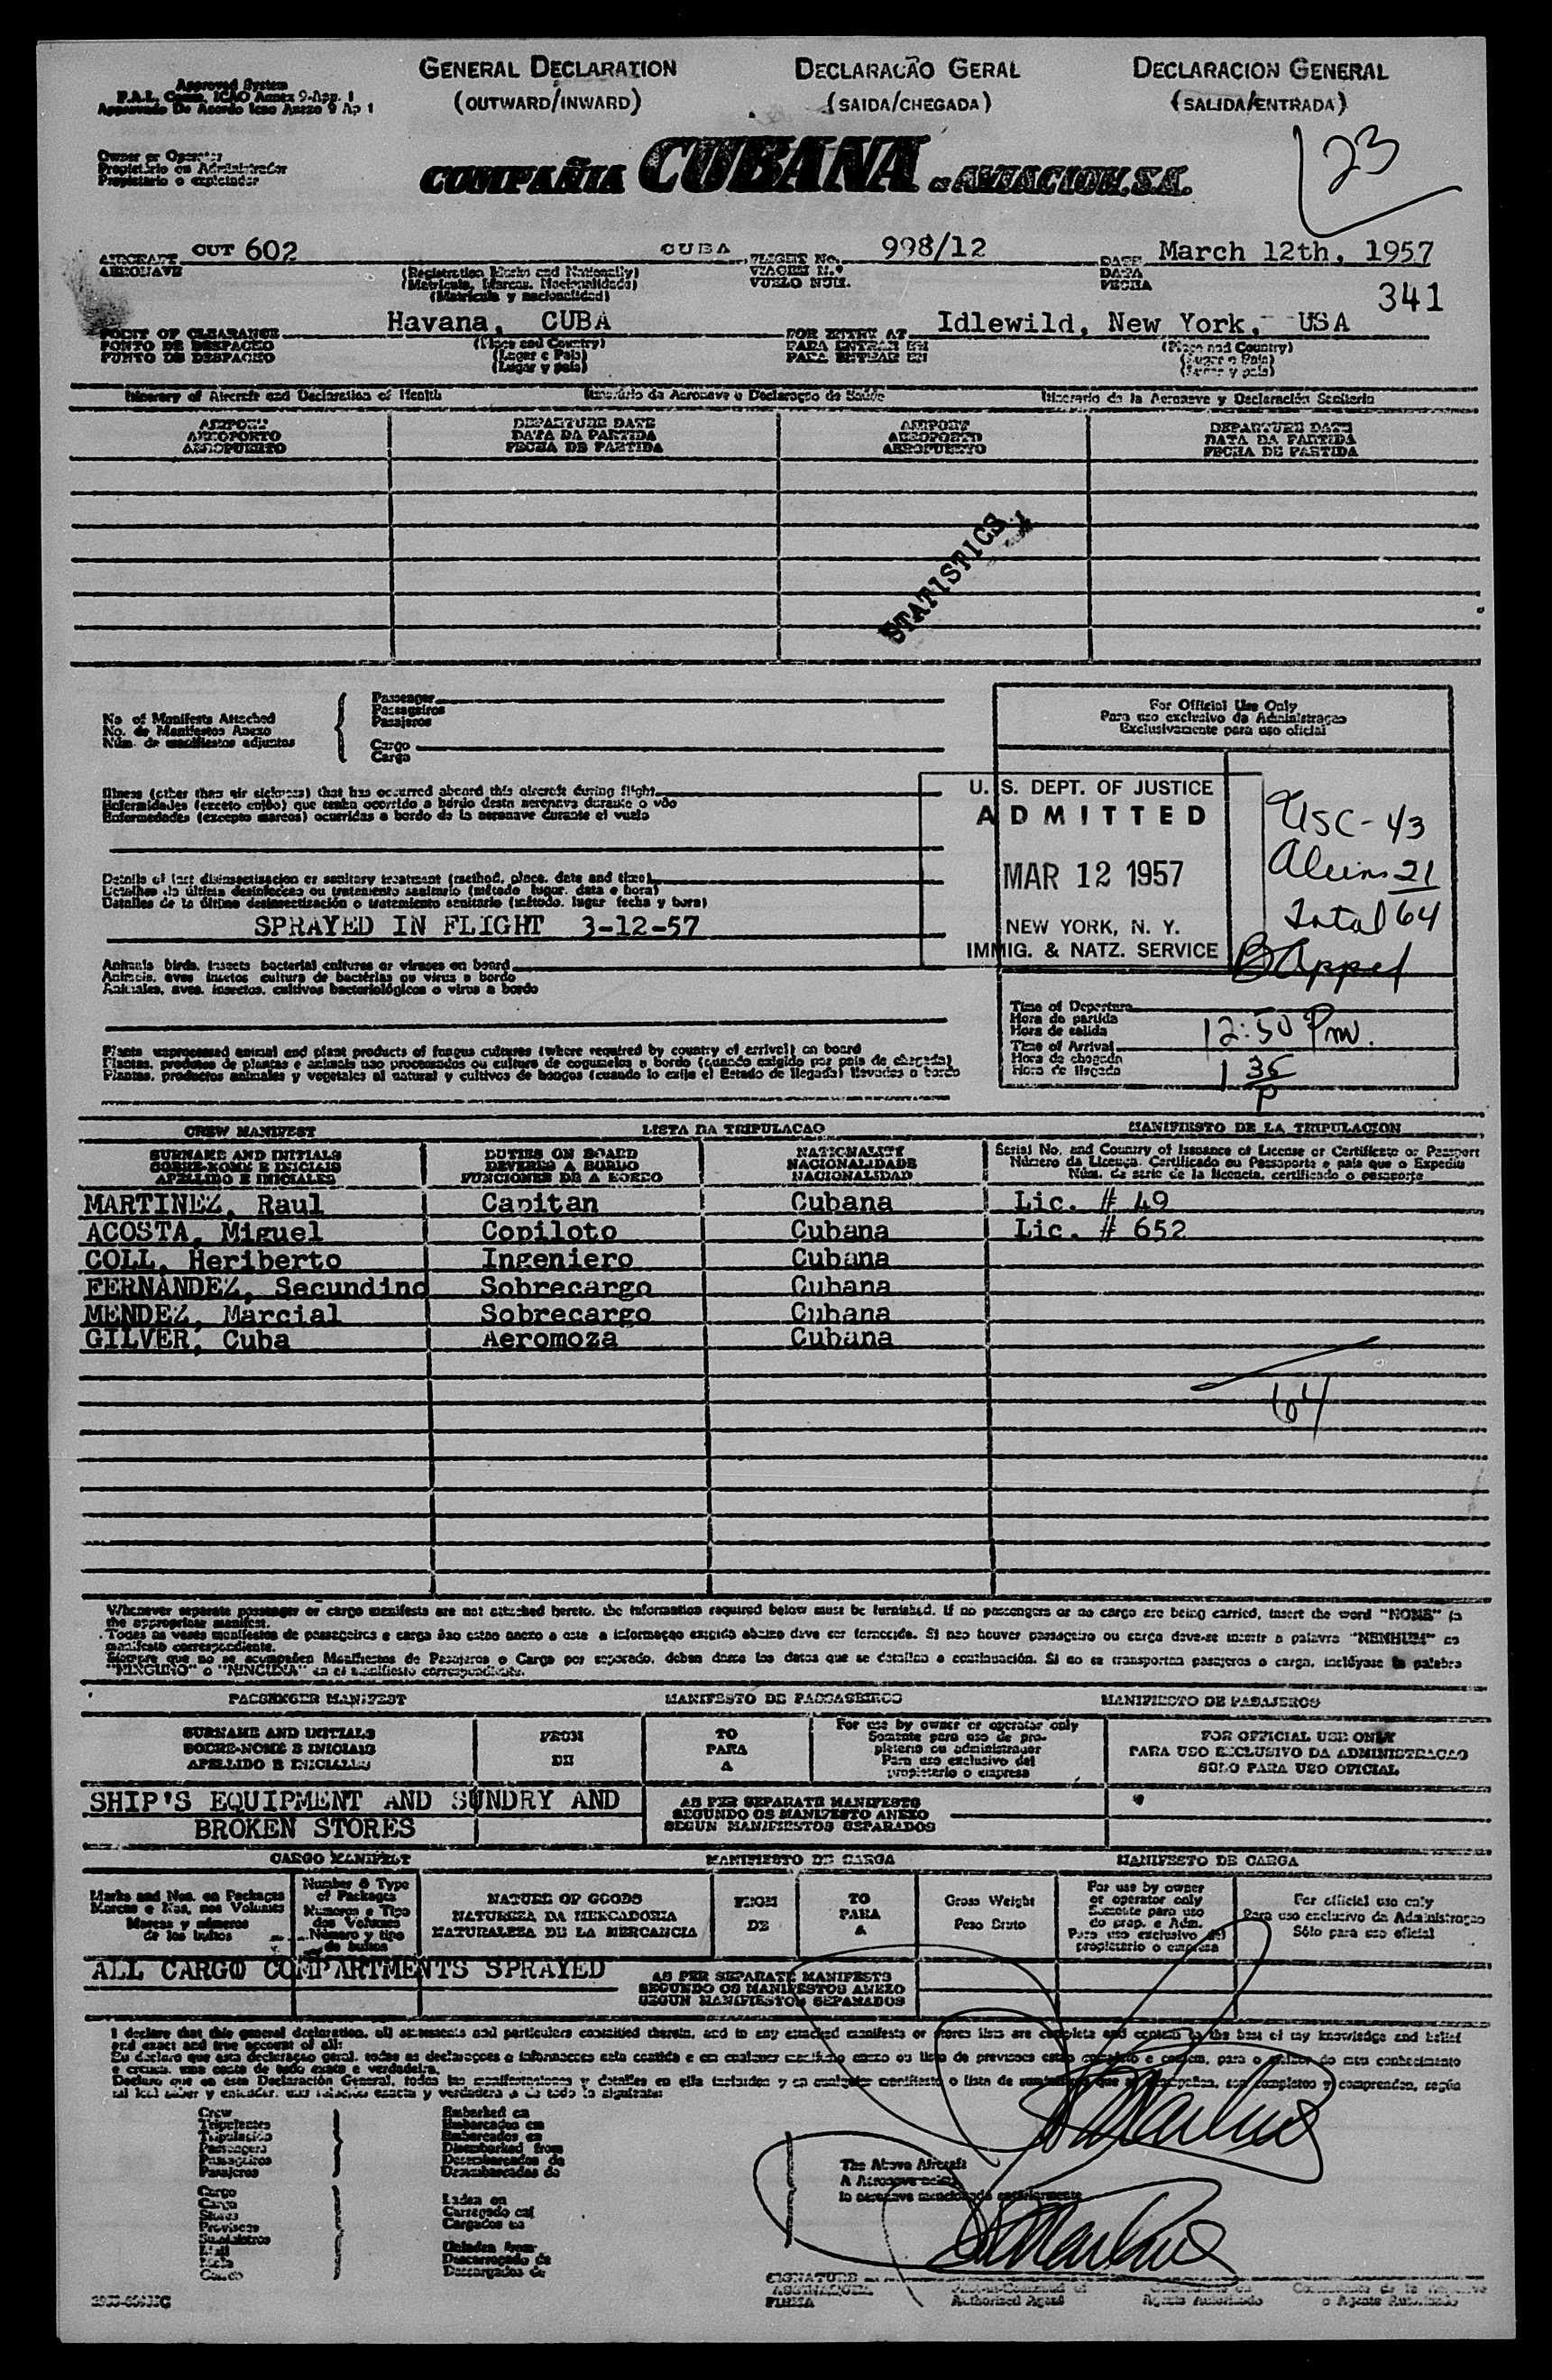 GENERAL DECLARATION
(OUTWARD/INWARD)
DECLARAÇÃO GERAL
(SAIDA/CHEGADA)
DECLARACION GENERAL
(SALIDA/ENTRADA)
Approved System
F.A.L. Comm. ICAO Annex 9-App. 1
Approvado De Acordo Icao Anexo 9 Ap 1
23
Owner or Operator
Propietário ou Administrador
Propietario o explotador
COMPAÑIA CUBANA DE AVIACION, S.A.
AIRCRAFT CUT 602 CUBA
AERONAVE
(Registration Marks and Nationally)
(Matricula, Marcas, Nacionalidade)
(Matricula y nacionalidad)
FLIGHT No. 998/12
VIAGEM N.º
VUELO NUM.
DATE March 12th, 1957
DATA
FECHA
341
POINT OF CLEARANCE Havana, CUBA
PONTO DE DESPACHO
PUNTO DE DESPACHO
(Place and Country)
(Lugar e Pais)
(Lugar y pais)
FOR ENTRY AT Idlewild, New York, USA
PARA ENTRAR EM
PARA ENTRAR EN
(Place and Country)
(Lugar e Pais)
(Lugar y pais)
Itinerary of Aircraft and Declaration of Health
Itinerário da Aeronave e Declaração de Saúde
Itinerario de la Aeronave y Declaración Sanitaria
AIRPORT
AEROPORTO
AEROPUERTO
DEPARTURE DATE
DATA DA PARTIDA
FECHA DE PARTIDA
AIRPORT
AEROPORTO
AEROPUERTO
DEPARTURE DATE
DATA DA PARTIDA
FECHA DE PARTIDA
STATISTICS
No of Manifests Attached
No. de Manifestos Anexo
Núm. de manifiestos adjuntos
Passenger
Passageiros
Pasajeros
Cargo
Carga
For Official Use Only
Para uso exclusivo da Administraçao
Exclusivamente para uso oficial
Illness (other than air sickness) that has occurred aboard this aircraft during flight
Enfermidades (exceto enjôo) que tenha ocorrido a bórdo desta aeronave durante o vôo
Enfermedades (excepto mareos) ocurridas a bordo de la aeronave durante el vuelo
U. S. DEPT. OF JUSTICE
ADMITTED
MAR 12 1957
NEW YORK, N. Y.
IMMIG. & NATZ. SERVICE
USC - 43
Aliens 21
Total 64
B Appel
Details of last disinsectisacion or sanitary treatment (method, place, date and time)
Detalhes da última desinfeccao ou tratamento sanitario (método lugar, data e hora)
Detalles de la última desinsectización o tratamiento sanitario (método, lugar fecha y hora)
SPRAYED IN FLIGHT 3-12-57
Animals birds, insects bacterial cultures or viruses on board
Animais, aves insetos cultura de bactérias ou virus a bordo
Animales, aves, insectos, cultivos bacteriológicos o virus a bordo
Time of Departure
Hora de partida
Hora de salida
12:50 Pm.
Time of Arrival
Hora de chegada
Hora de llegada
1 35 P
Plants unprocessed animal and plant products of fungus cultures (where required by country of arrival) on board
Plantas, produtos de plantas e animais nao processados ou cultura de cogumelos a bordo (quando exigido por pais de chegada)
Plantas, productos animales y vegetales al natural y cultivos de hongos (cuando lo exija el Estado de llegada) llevados a bordo
CREW MANIFEST
LISTA DA TRIPULACAO
MANIFIESTO DE LA TRIPULACION
SURNAME AND INITIALS
SOBRE-NOME E INICIAIS
APELLIDO E INICIALES
DUTIES ON BOARD
DEVERES A BORDO
FUNCIONES DE A BORDO
NATIONALITY
NACIONALIDADE
NACIONALIDAD
Serial No. and Country of Issuance of License or Certificate or Passport
Número da Licença, Certificado ou Passoporte e pais que o Expediu
Núm. de serie de la licencia, certificado o pasaporte
MARTINEZ, Raul Capitan Cubana Lic. # 49
ACOSTA, Miguel Copiloto Cubana Lic. # 652
COLL, Heriberto Ingeniero Cubana
FERNANDEZ, Secundino Sobrecargo Cubana
MENDEZ, Marcial Sobrecargo Cubana
GILVER, Cuba Aeromoza Cubana
64
Whenever separate passenger or cargo manifests are not attached hereto, the information required below must be furnished. If no passengers or no cargo are being carried, insert the word "NONE" in
the appropriate manifest.
Todas as vezes manifestos de passageiros e carga não estão anexo a este a informaçao exigida abaixo deve ser fornecida. Si nao houver passageiro ou carga deve-se inserir a palavra "NENHUM" no
manifesto correspondiente.
Siempre que no se acompañen Manifiestos de Pasajeros o Carga por separado, deben darse los datos que se detallan a continuación. Si no se transportan pasajeros o carga, inclúyase la palabra
"NINGUNO" o "NINGUNA" en el manifiesto correspondiente.
PASSENGER MANIFEST
MANIFESTO DE PASSAGEIROS
MANIFIESTO DE PASAJEROS
SURNAME AND INITIALS
SOBRE-NOME E INICIAIS
APELLIDO E INICIALES
FROM
DE
TO
PARA
A
For use by owner or operator only
Somente para uso de pro-
pietario ou administrador
Para uso exclusivo del
propietario o empresa
FOR OFFICIAL USE ONLY
PARA USO EXCLUSIVO DA ADMINISTRACAO
SOLO PARA USO OFICIAL
SHIP'S EQUIPMENT AND SUNDRY AND
BROKEN STORES
AS PER SEPARATE MANIFESTS
SEGUNDO OS MANIFESTO ANEXO
SEGUN MANIFIESTOS SEPARADOS
CARGO MANIFEST
MANIFIESTO DE CARGA
MANIFESTO DE CARGA
Marks and Nos. on Packages
Marcas e Nos. nos Volumes
Marcas y números
de los bultos
Number & Type
of Packages
Numeros e Tipo
dos Volumes
Número y tipo
de bultos
NATURE OF GOODS
NATUREZA DA MERCADORIA
NATURALEZA DE LA MERCANCIA
FROM
DE
TO
PARA
A
Gross Weight
Peso Bruto
For use by owner
or operator only
Somente para uso
do prop. e Adm.
Para uso exclusivo del
propietario o empresa
For official use only
Para uso exclusivo da Administraçao
Sólo para uso oficial
ALL CARGO COMPARTMENTS SPRAYED
AS PER SEPARATE MANIFESTS
SEGUNDO OS MANIFESTOS ANEXO
SEGUN MANIFIESTOS SEPARADOS
I declare that this general declaration, all statements and particulars contained therein, and in any attached manifests or stores lists are complete and contain to the best of my knowledge and belief
and exact and true account of all:
Crew
Tripulantes
Tripulación
Passengers
Passageiros
Pasajeros
Embarked on
Embarcados em
Embarcados en
Disembarked from
Desembarcados de
Desembarcados de
Cargo
Carga
Stores
Provisoes
Suministros
Mail
Laden on
Carregado em
Cargados en
Unladen from
Descarregado de
Descargados de
The Above Aircraft
A Aeronave acima
la aeronave mencionada anteriormente
SIGNATURE
ASSINATURA
FIRMA
Pilot-in-Command or
Authorized Agent
Agente Autorizado
o Agente Autorizado